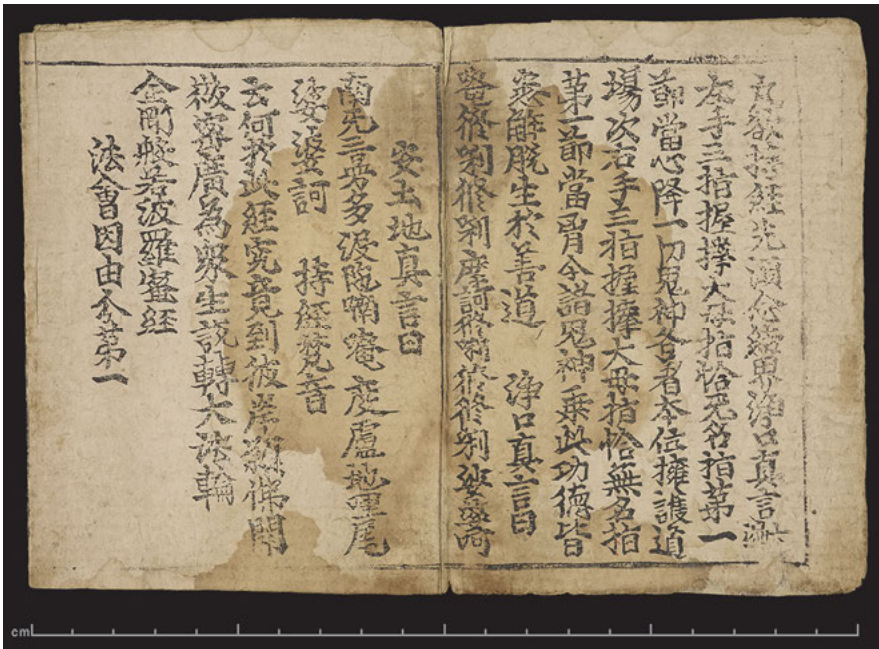 凡欲持經先須念結界淨口真言
左手三指握擰大母指恰无名指第一
節當心降一切鬼神各着本位擁護道
場次右手三指握擰大母指恰無名指
第一節當肩令諸鬼神乗此功德皆
悉解脫生於善道 淨口真言曰
唵修唎修唎摩訶修唎修修唎娑婆訶
安土地真言曰
南无三曼多沒陁喃唵度盧地里尾
娑婆訶 持經梵音
云何於此經究竟到彼岸願佛開
微密廣為眾生說轉大法輪
金剛般若波羅蜜經
法會因由分第一
cm